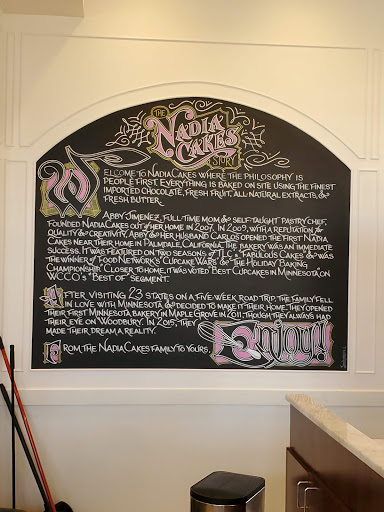 THE
NADIA
CAKES
STORY
WELCOME TO NADIA CAKES WHERE THE PHILOSOPHY IS
PEOPLE FIRST. EVERYTHING IS BAKED ON SITE USING THE FINEST
IMPORTED CHOCOLATE, FRESH FRUIT, ALL-NATURAL EXTRACTS, &
FRESH BUTTER.
ABBY JIMENEZ, FULL TIME MOM & SELF-TAUGHT PASTRY CHEF,
FOUNDED NADIA CAKES OUT OF HER HOME IN 2007. IN 2009, WITH A REPUTATION FOR
QUALITY & CREATIVITY, ABBY & HER HUSBAND CARLOS OPENED THE FIRST NADIA
CAKES NEAR THEIR HOME IN PALMDALE, CALIFORNIA. THE BAKERY WAS AN IMMEDIATE
SUCCESS. IT WAS FEATURED ON TWO SEASONS OF TLC'S "FABULOUS CAKES" & WAS
THE WINNER OF FOOD NETWORK'S "CUPCAKE WARS" & "THE HOLIDAY BAKING
CHAMPIONSHIP." CLOSER TO HOME, IT WAS VOTED BEST CUPCAKES IN MINNESOTA ON
WCCO'S "BEST OF" SEGMENT.
AFTER VISITING 23 STATES ON A FIVE-WEEK ROAD TRIP, THE FAMILY FELL
IN LOVE WITH MINNESOTA & DECIDED TO MAKE IT THEIR HOME. THEY OPENED
THEIR FIRST MINNESOTA BAKERY IN MAPLE GROVE IN 2011, THOUGH THEY ALWAYS HAD
THEIR EYE ON WOODBURY. IN 2015, THEY
MADE THEIR DREAM A REALITY.
FROM THE NADIA CAKES FAMILY TO YOURS,
Enjoy!